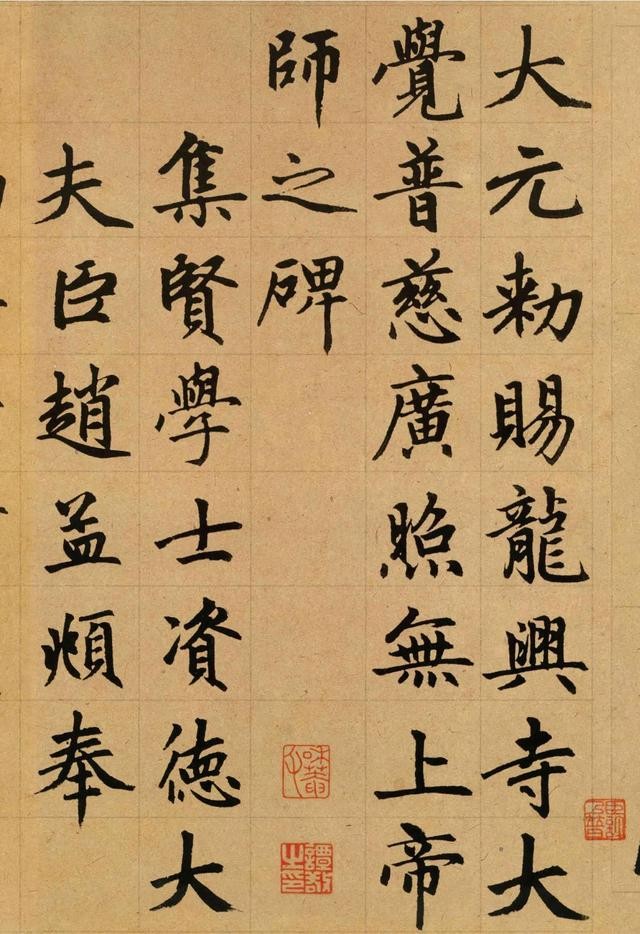 大元勑賜龍興寺大
覺普慈廣照無上帝
師之碑
集賢學士資德大
夫臣趙孟頫奉